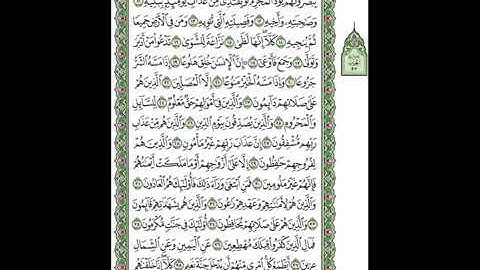 يُبَصَّرُونَهُمْ يَوَدُّ ٱلْمُجْرِمُ لَوْ يَفْتَدِى مِنْ عَذَابِ يَوْمِئِذٍۭ بِبَنِيهِ
وَصَٰحِبَتِهِۦ وَأَخِيهِ ١٢ وَفَصِيلَتِهِ ٱلَّتِى تُـْٔوِيهِ ١٣ وَمَن فِى ٱلْأَرْضِ جَمِيعًا
ثُمَّ يُنجِيهِ ١٤ كَلَّآ إِنَّهَا لَظَىٰ ١٥ نَزَّاعَةً لِّلشَّوَىٰ ١٦ تَدْعُوا۟ مَنْ أَدْبَرَ
وَتَوَلَّىٰ ١٧ وَجَمَعَ فَأَوْعَىٰٓ ١٨ إِنَّ ٱلْإِنسَٰنَ خُلِقَ هَلُوعًا ١٩ إِذَا مَسَّهُ ٱلشَّرُّ
جَزُوعًا ٢٠ وَإِذَا مَسَّهُ ٱلْخَيْرُ مَنُوعًا ٢١ إِلَّا ٱلْمُصَلِّينَ ٢٢ ٱلَّذِينَ هُمْ
عَلَىٰ صَلَاتِهِمْ دَآئِمُونَ ٢٣ وَٱلَّذِينَ فِىٓ أَمْوَٰلِهِمْ حَقٌّ مَّعْلُومٌ ٢٤ لِّلسَّآئِلِ
وَٱلْمَحْرُومِ ٢٥ وَٱلَّذِينَ يُصَدِّقُونَ بِيَوْمِ ٱلدِّينِ ٢٦ وَٱلَّذِينَ هُم مِّنْ عَذَابِ
رَبِّهِم مُّشْفِقُونَ ٢٧ إِنَّ عَذَابَ رَبِّهِمْ غَيْرُ مَأْمُونٍ ٢٨ وَٱلَّذِينَ هُمْ
لِفُرُوجِهِمْ حَٰفِظُونَ ٢٩ إِلَّا عَلَىٰٓ أَزْوَٰجِهِمْ أَوْ مَا مَلَكَتْ أَيْمَٰنُهُمْ
فَإِنَّهُمْ غَيْرُ مَلُومِينَ ٣٠ فَمَنِ ٱبْتَغَىٰ وَرَآءَ ذَٰلِكَ فَأُو۟لَٰٓئِكَ هُمُ ٱلْعَادُونَ ٣١
وَٱلَّذِينَ هُمْ لِأَمَٰنَٰتِهِمْ وَعَهْدِهِمْ رَٰعُونَ ٣٢ وَٱلَّذِينَ هُم بِشَهَٰدَٰتِهِمْ قَآئِمُونَ
٣٣ وَٱلَّذِينَ هُمْ عَلَىٰ صَلَاتِهِمْ يُحَافِظُونَ ٣٤ أُو۟لَٰٓئِكَ فِى جَنَّٰتٍ مُّكْرَمُونَ ٣٥
فَمَالِ ٱلَّذِينَ كَفَرُوا۟ قِبَلَكَ مُهْطِعِينَ ٣٦ عَنِ ٱلْيَمِينِ وَعَنِ ٱلشِّمَالِ
عِزِينَ ٣٧ أَيَطْمَعُ كُلُّ ٱمْرِئٍ مِّنْهُمْ أَن يُدْخَلَ جَنَّةَ نَعِيمٍ ٣٨ كَلَّآ إِنَّا خَلَقْنَٰهُم